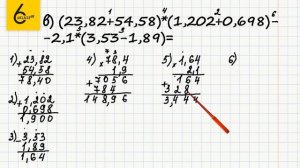 6 класс
в) (23,82+54,58)*(1,202+0,698)-
-2,1*(3,53-1,89)=
1) +23,82
54,58
78,40
2) +1,202
0,698
1,900
3) -3,53
1,89
1,64
4) ×78,4
1,9
+7056
784
148,96
5) ×1,64
2,1
+164
328
3,444
6)